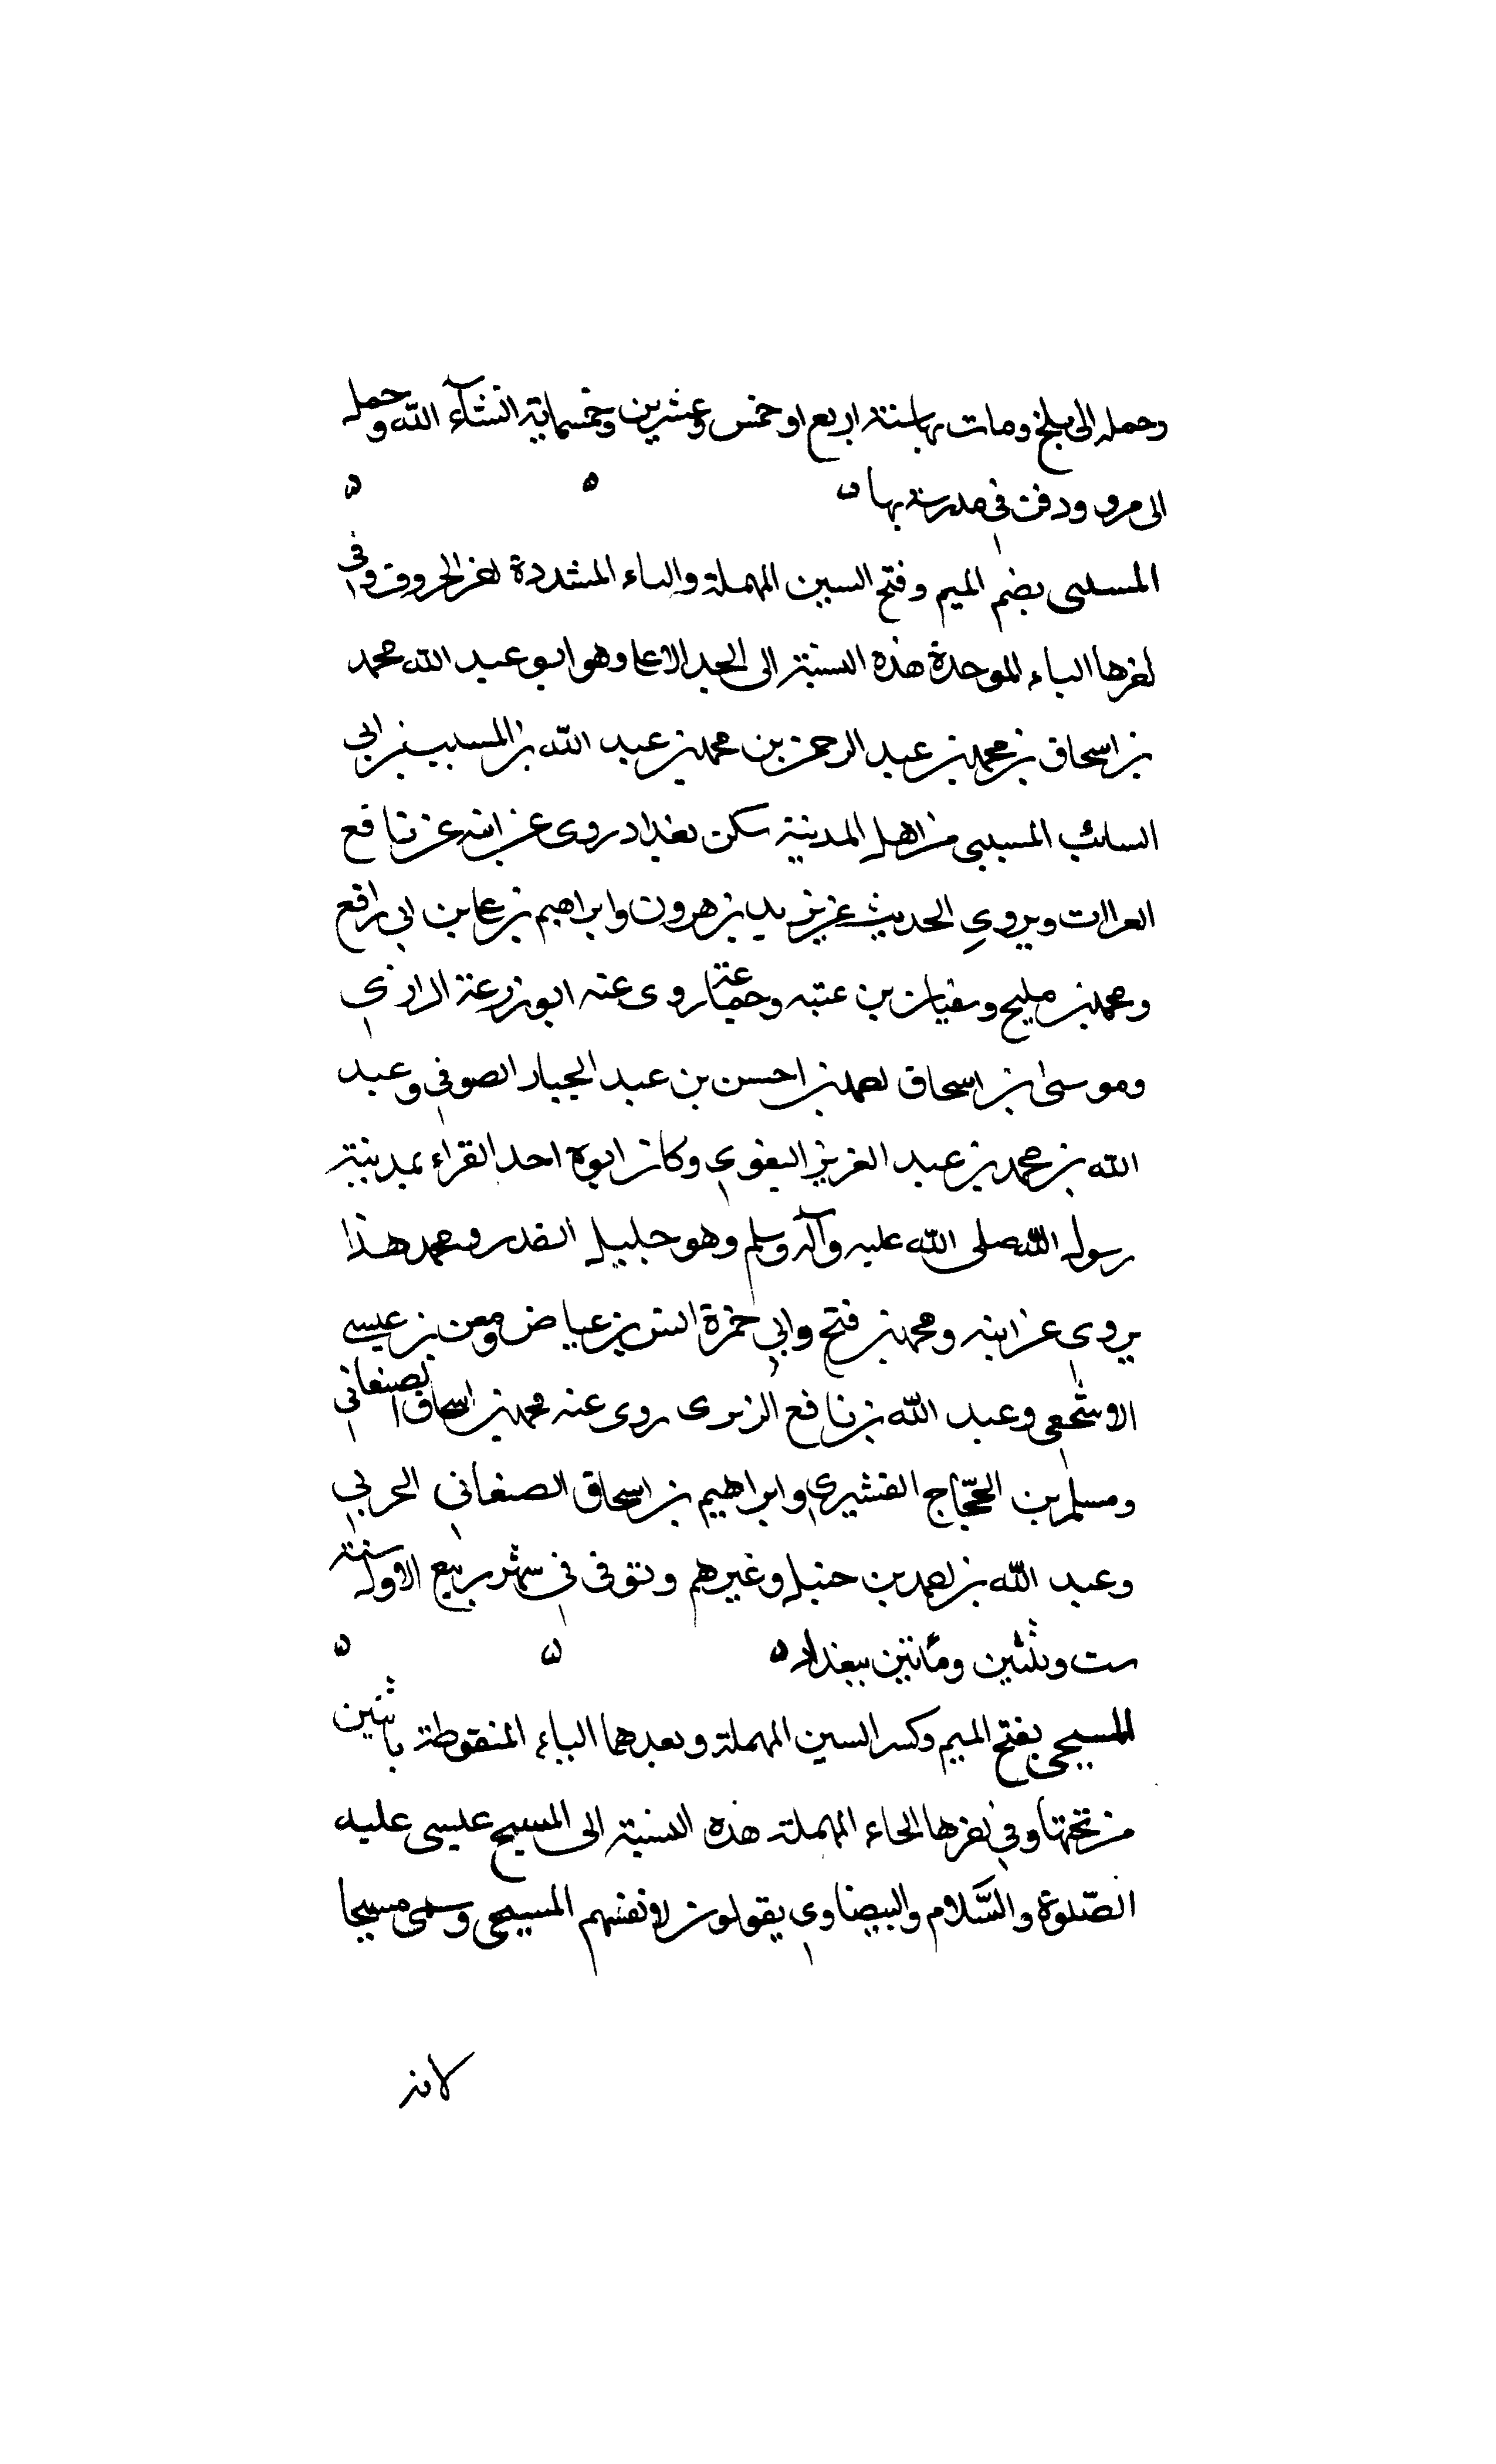 وحمله الى بلخ ومات بها سنة اربع او خمس وعشرين وخمسماية انشآء الله وحمله
الى مرو ودفن في مدرسة بها ه ه ه
المسيبى بضم الميم وفتح السين المهملة والياء المشددة اخر الحروف وفى
اخرها الباء الموحدة هذه النسبة الى الجد الاعلى وهو ابو عبد الله محمد
بن اسحاق بن محمد بن عبد الرحمن بن محمد بن عبد الله بن المسيب بن ابى
السائب المسيبى من اهل المدينة سكن بغداد روى عن ابيه عن نافع
القراات ويروي الحديث عن يزيد بن هرون وابراهيم بن على بن ابى رافع
ومحمد بن مليح وسفيان بن عتبه وجماعة روى عنه ابو زرعة الرازي
وموسى بن اسحاق احمد بن احسن بن عبد الجبار الصوفي وعبد
الله بن محمد بن عبد العزيز البغوي وكان ابوه احد القراء بمدينة
رسول الله صلى الله عليه وآله وسلم وهو جليل القدر ومحمد هذا
يروي عن ابيه ومحمد بن فتح وابي حمزة انس بن عياض ومعن بن عيسى
الاشجعي وعبد الله بن نافع الزبرى روى عنه محمد بن اسحاق الصنعاني
ومسلم بن الحجّاج القشيري وابراهيم بن اسحاق الصنعاني الحربي
وعبد الله بن احمد بن حنبل وغيرهم وتوفى في شهر ربيع الاول سنة
ست وثلثين ومائتين ببغداد ه ه ه
المسيحى بفتح الميم وكسر السين المهملة وبعدهما الياء المنقوطة باثنين
من تحتها وفي اخرها الحاء المهملة هذه النسبة الى المسيح عيسى عليه
الصّلوة والسَّلام والبيضاوي يقولون لانفسهم المسيحى وسمى مسيحا
لانه